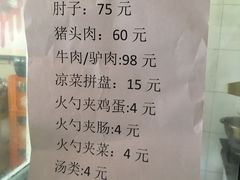 肘子：75 元
猪头肉：60 元
牛肉/驴肉:98 元
凉菜拼盘：15 元
火勺夹鸡蛋:4 元
火勺夹肠:4 元
火勺夹菜：4 元
汤类:4 元